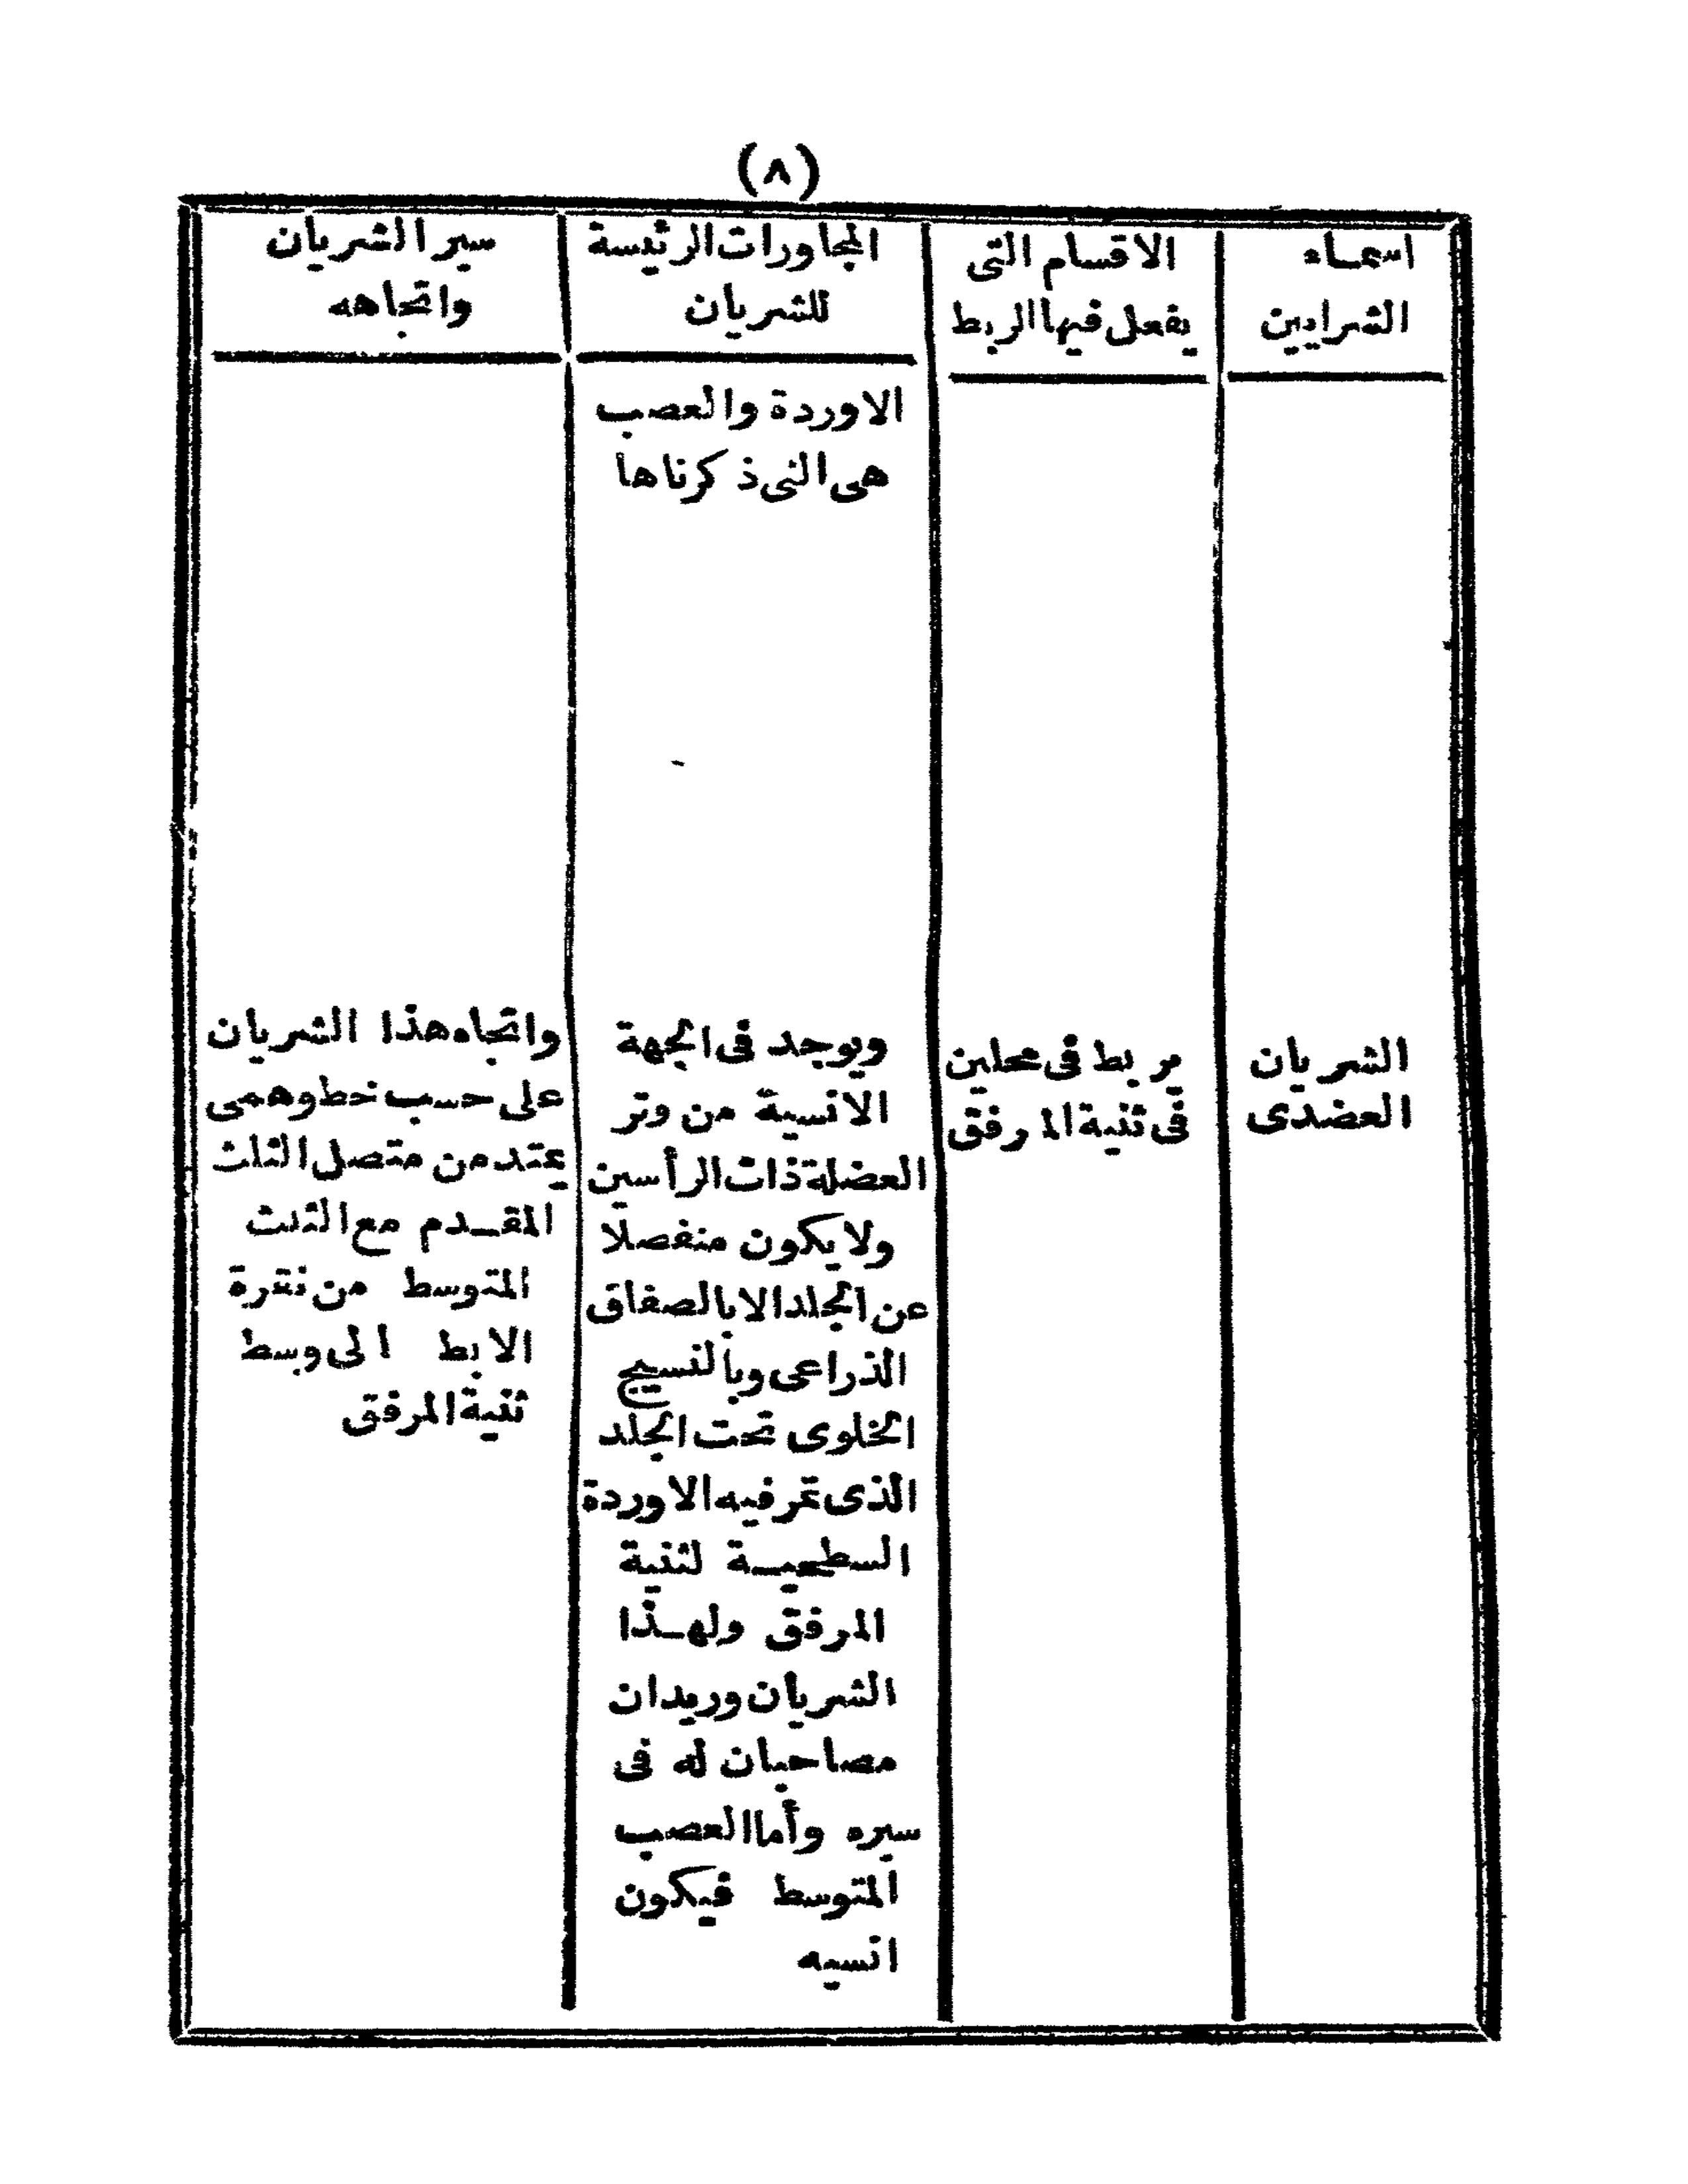 (٨)
اسماء
الشرايين
الاقسام التى
يفعل فيها الربط
المجاورات الرئيسة
للشريان
سير الشريان
واتجاهه
الاوردة والعصب
هى التى ذكرناها
الشريان
العضدى
يربط فى محلين
فى ثنية المرفق
ويوجد فى الجهة
الانسية من وتر
العضلة ذات الرأسين
ولا يكون منفصلا
عن الجلد الا بالصفاق
الذراعى وبالنسيج
الخلوى تحت الجلد
الذى تمر فيه الاوردة
السطحية لثنية
المرفق ولهذا
الشريان وريدان
مصاحبان له فى
سيره وأما العصب
المتوسط فيكون
انسيه
واتجاه هذا الشريان
على حسب خط وهمى
يمتد من متصل الثلث
المقدم مع الثلث
المتوسط من نقرة
الابط الى وسط
ثنية المرفق